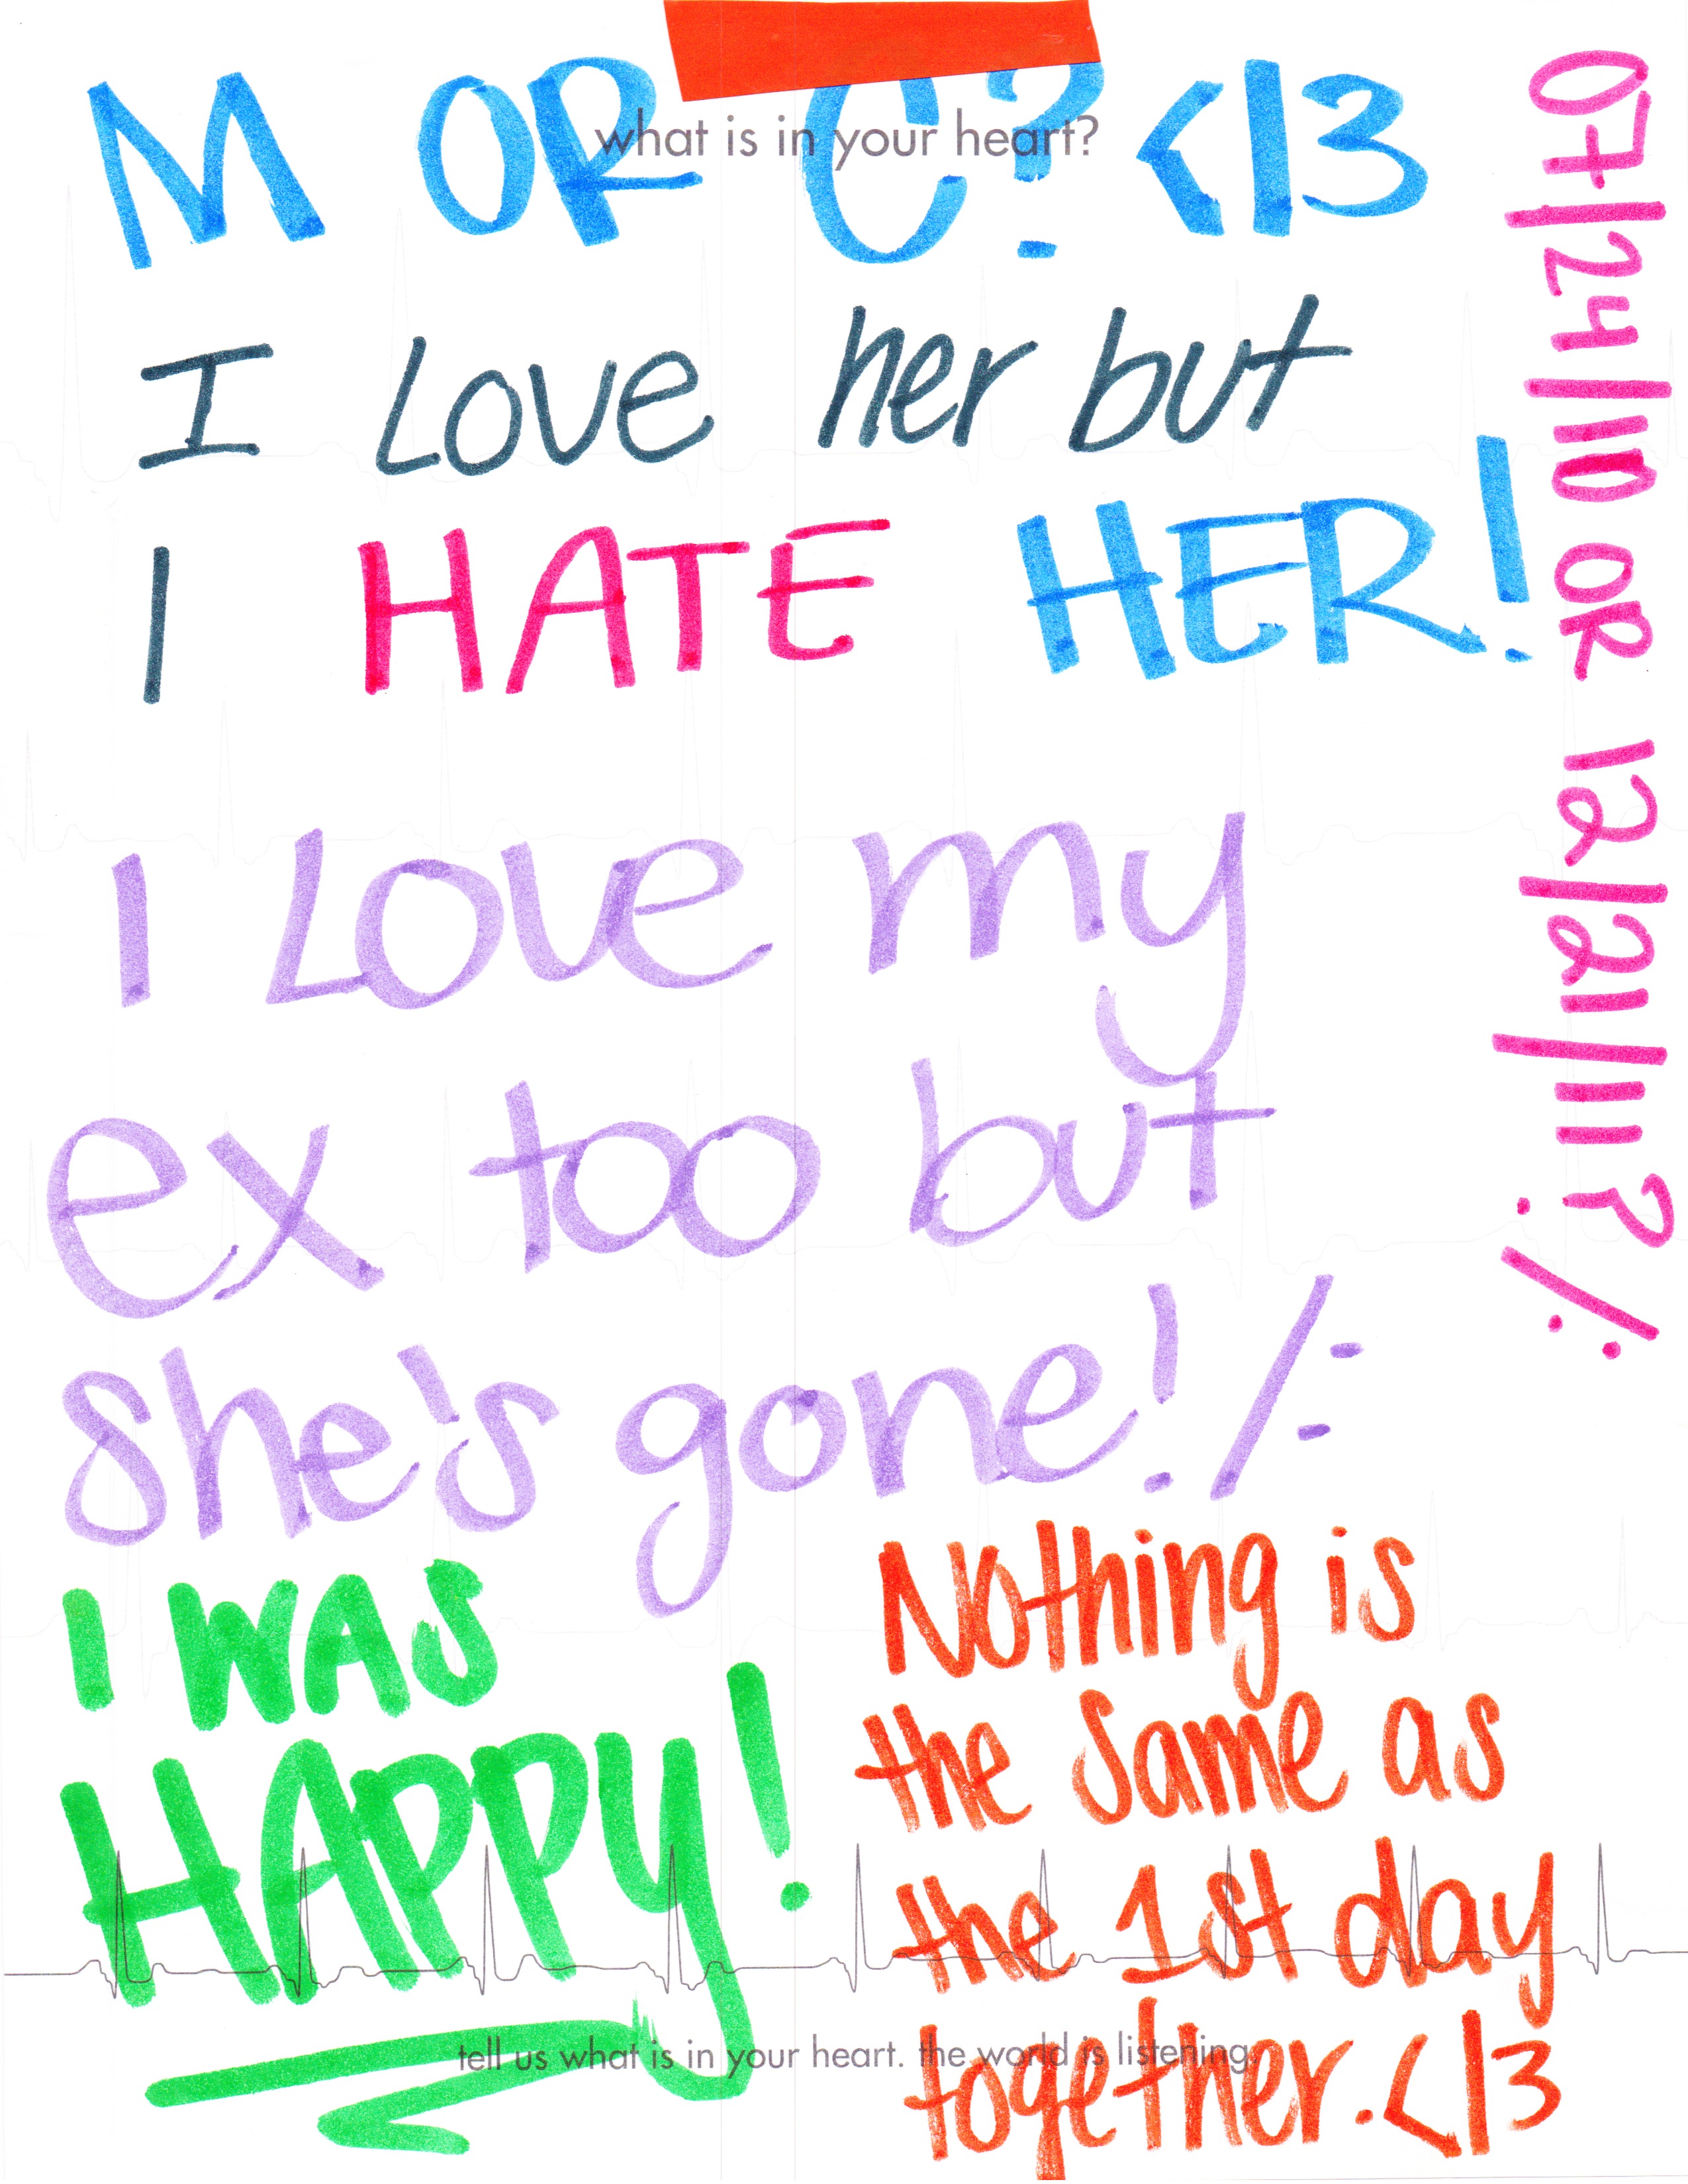 what is in your heart?
M OR C? <|3
I Love her but
I HATE HER!
I Love my
ex too but
she's gone! /:
I WAS
HAPPY!
Nothing is
the same as
the 1st day
together. <|3
07/24/10 OR 12/21/11? :/
tell us what is in your heart. the world is listening.